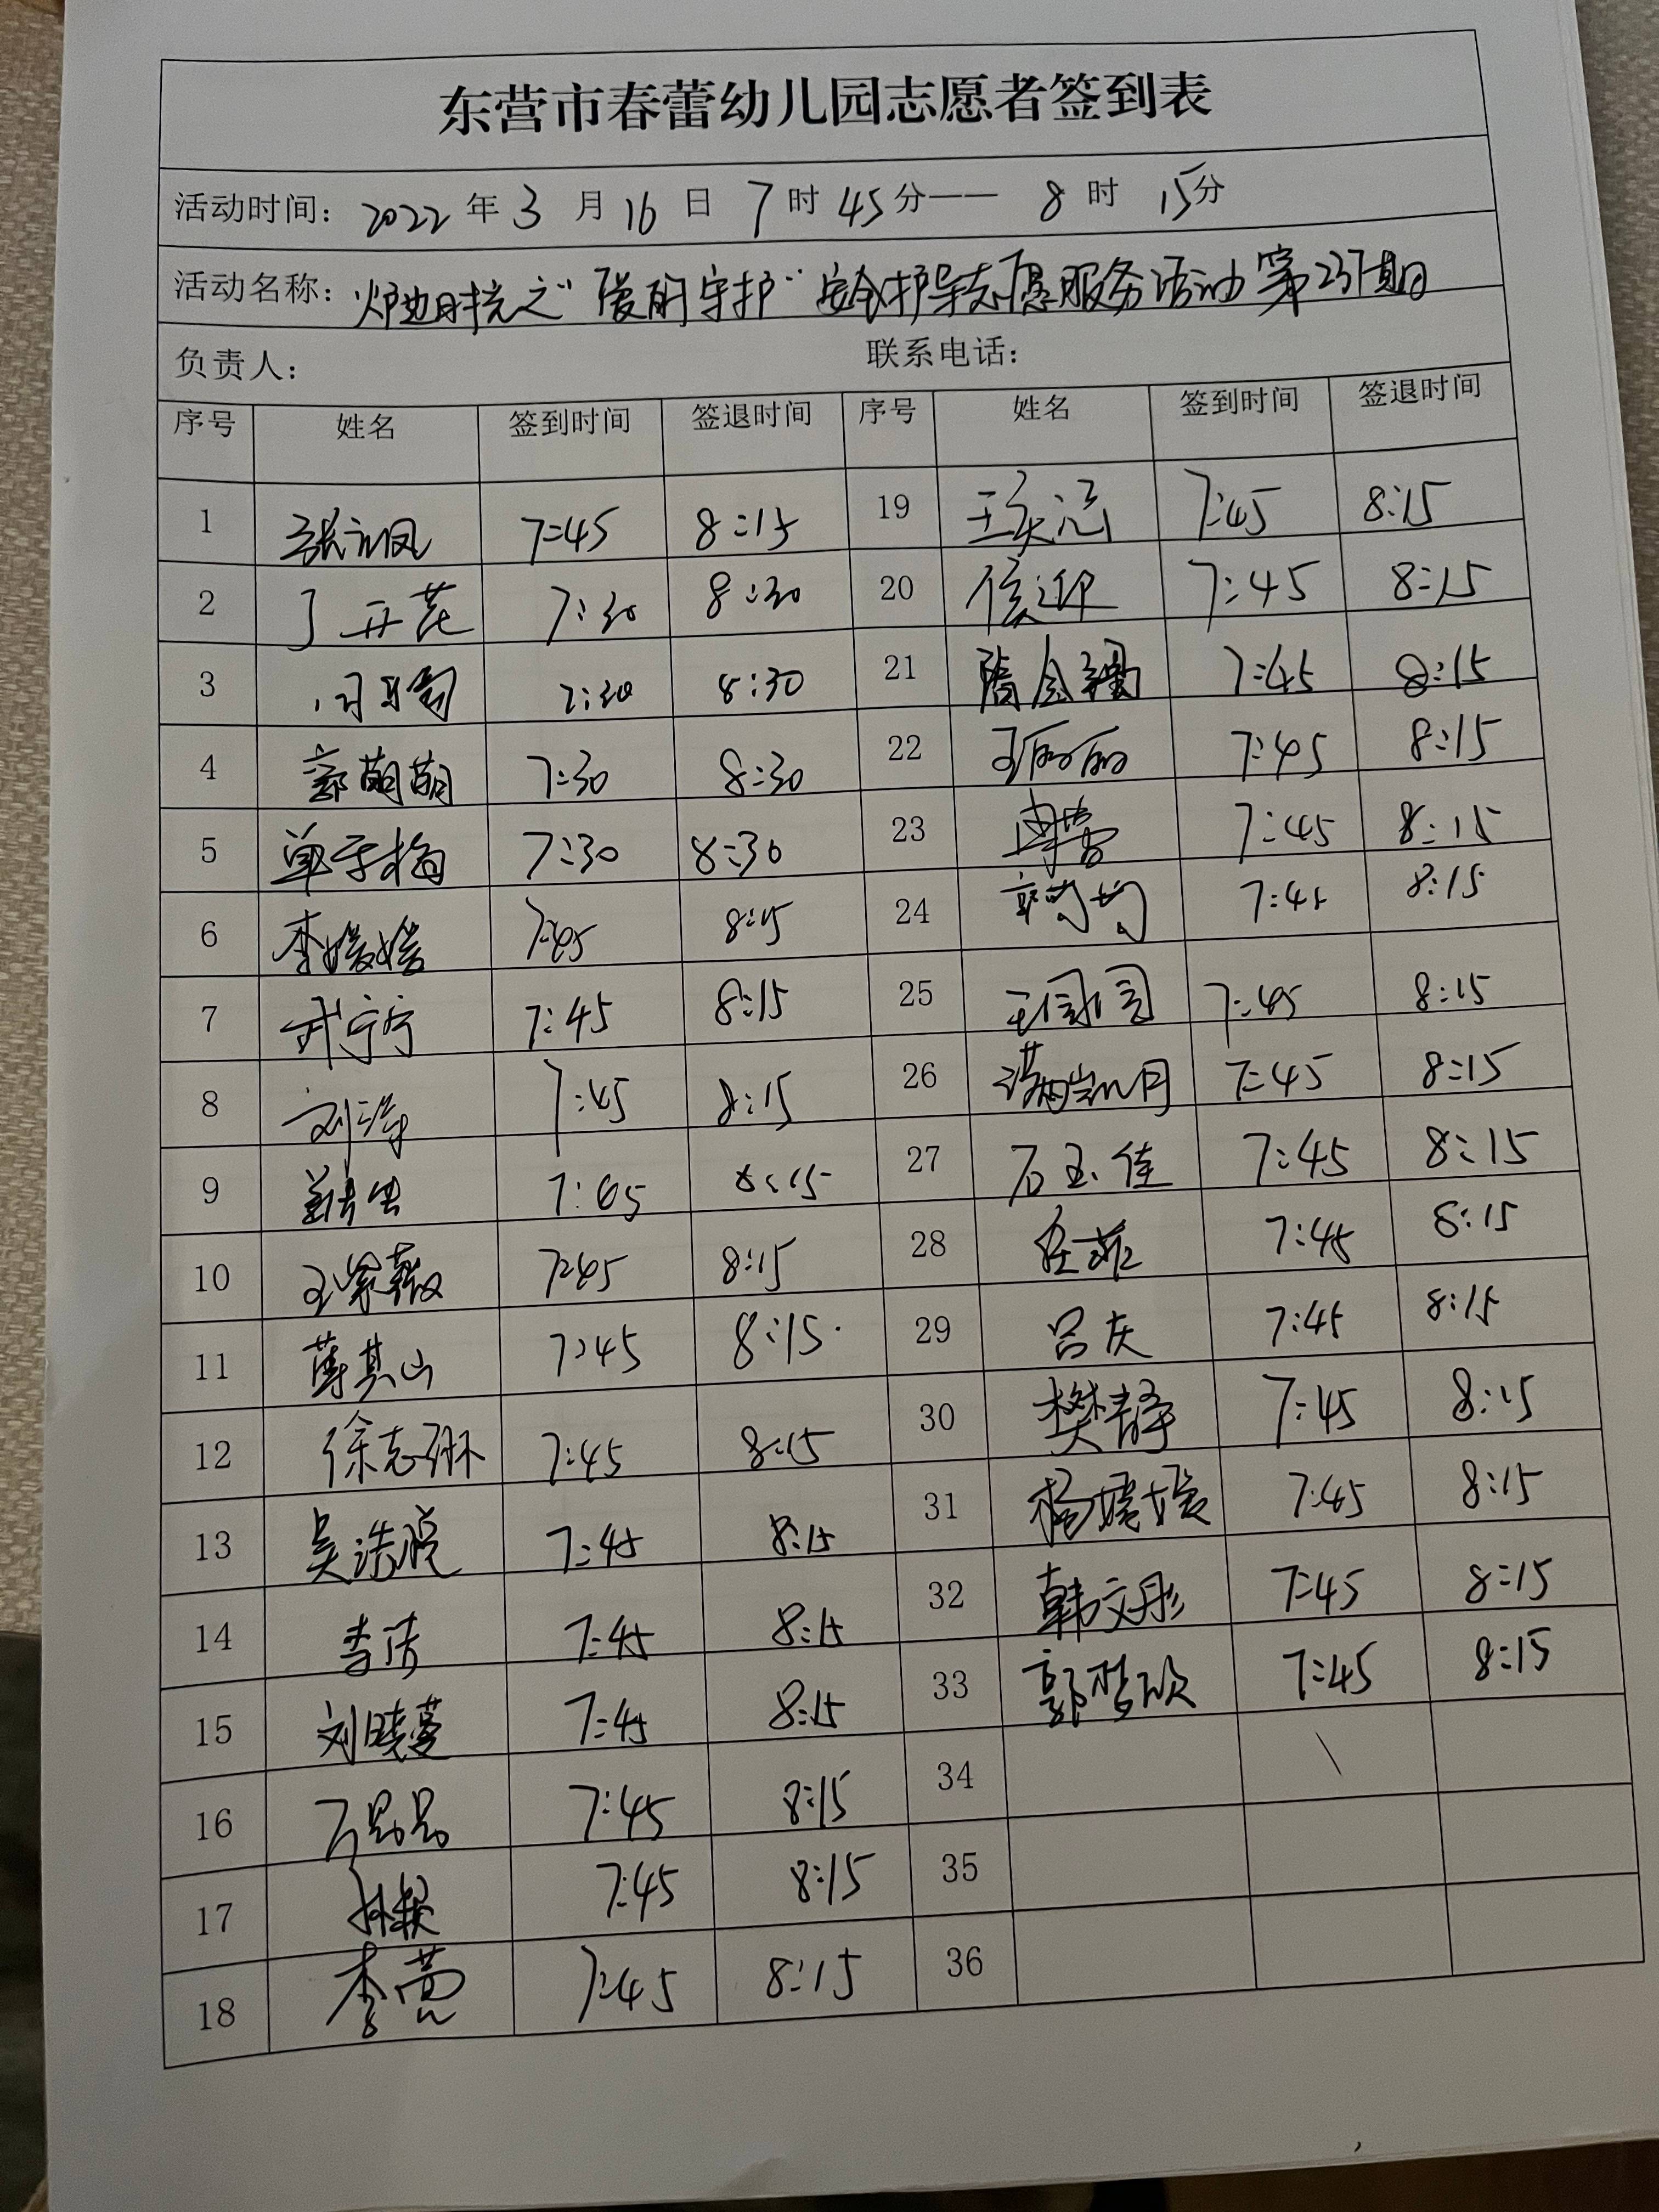 东营市春蕾幼儿园志愿者签到表
活动时间：2022年3月16日7时45分——8时15分
活动名称：炉边时光之“爱的守护”安全护导志愿服务活动第237期
负责人： 联系电话：
序号 姓名 签到时间 签退时间 序号 姓名 签到时间 签退时间
1 张立凤 7:45 8:15 19 7:45 8:15
2 丁开花 7:30 8:30 20 侯迎 7:45 8:15
3 7:30 8:30 21 7:45 8:15
4 郭萌萌 7:30 8:30 22 王丽丽 7:45 8:15
5 单于梅 7:30 8:30 23 7:45 8:15
6 李媛媛 7:45 8:15 24 7:45 8:15
7 武宁宁 7:45 8:15 25 王园园 7:45 8:15
8 刘萍 7:45 8:15 26 7:45 8:15
9 7:45 8:15 27 石玉佳 7:45 8:15
10 王紫薇 7:45 8:15 28 任菲 7:45 8:15
11 薄其山 7:45 8:15 29 吕庆 7:45 8:15
12 徐志琳 7:45 8:15 30 樊静 7:45 8:15
13 吴浩悦 7:45 8:15 31 杨媛媛 7:45 8:15
14 李洁 7:45 8:15 32 韩文彤 7:45 8:15
15 刘晓蔓 7:45 8:15 33 郭哲欣 7:45 8:15
16 7:45 8:15 34
17 7:45 8:15 35
18 李莹 7:45 8:15 36